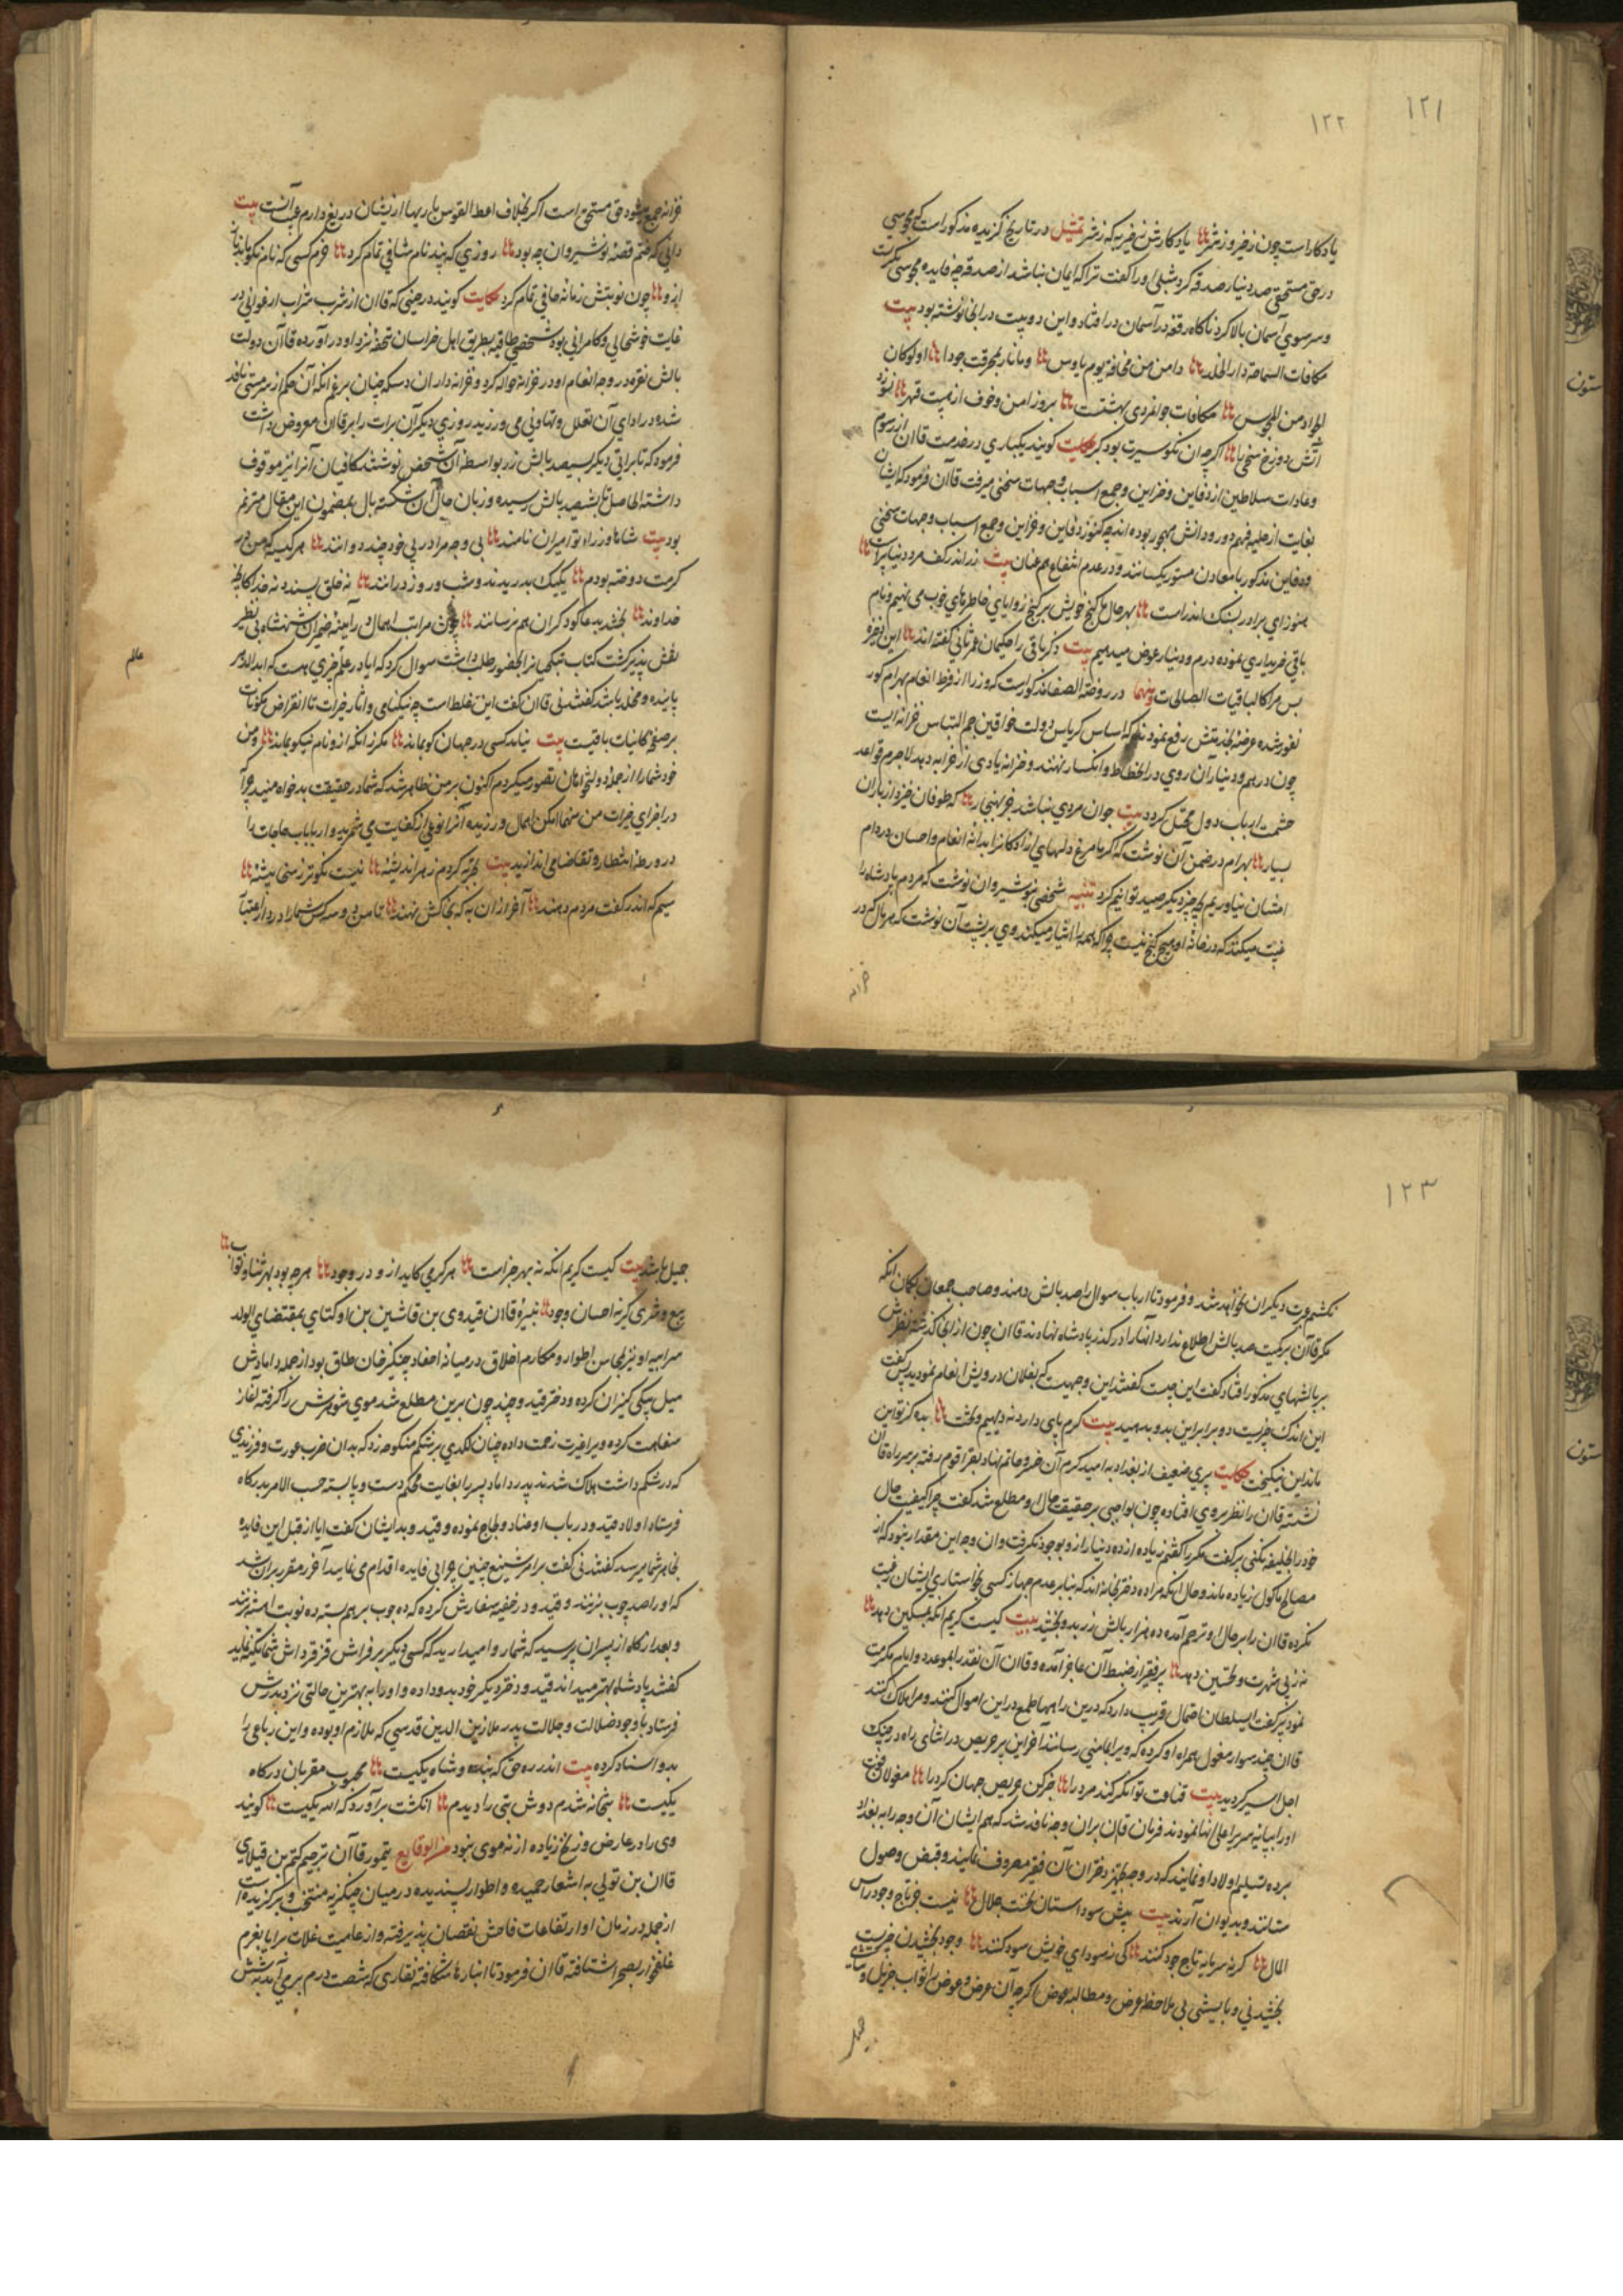 ۱۲۱
۱۲۲
یادکار است چون ز خیر و ز شر یادکارش ز خیر به که ز شر تمثیل در تاریخ کزیده مذکور است که مجوسی
در حق مستحقی صد دینار صدقه کرد شبلی او را کفت ترا که ایمان نباشد از صدقه چه فایده مجوسی بکریست
و سر سوی آسمان بالا کرد ناکاه رقعه از آسمان در افتاد و این دو بیت در آنجا نوشته بود بیت
مکافات السماحة دار الخلد و امن من مخافة یوم بوس و ما نار بمحرقة جوادا و لو کان
الجواد من المجوس مکافات جوانمردی بهشتست بروز امن و خوف از بیت قهر نسوزد
آتش دوزخ سخی را اکر چه ان نکو سیرت بود کبر حکایت کویند یکباری در خدمت قاآن از رسوم
و عادات سلاطین از دفاین و خزاین و جمع اسباب و جهات سخنی میرفت قاآن فرمود که ایشان
بغایت از حلیه فهم دور و دانش مهجور بوده اند چه کنوز دفاین و خزاین و جمع اسباب و جهات سخنی
و دفاین مذکور با معادن مستور یکسانند و در عدم انتفاع هم عنان بیت زر اندر کف مرد دنیا پرست
هنوز ای برادر بسنک اندر است بهر حال ما کنج خویش بر کنج زوایای خاطرهای خوب می نهیم و نام
باقی خریداری نموده درم و دینار عوض میدهیم بیت ذکر باقی را حکیمان عمر ثانی کفته اند این ذخیره
بس مرا کالباقیات الصالحات ومنها در روضة الصفا مذکور است که وزرا از فرط انعام بهرام کور
نفور شده عرضه بخدمتش رفع نمودند که اساس کریاس دولت خواقین جم التباس خزانه ایست
چون درهم و دیناران روی در انحطاط و انکسار نهند و خزانه یادی از خرابه دهد لاجرم قواعد
حشمت ارباب دول مختل کردد بیت جوان مردی نباشد جز بهنجار که طوفان خیزد از باران
بسیار بهرام در ضمن آن نوشت که اکر ما مرغ دلهای آزادکانرا بدانه انعام و احسان در دام
امتنان نیاوریم بچه چیز دیکر صید توانیم کرد تنبیه شخصی بنوشیروان نوشت که مردم پادشاه را
غیبت میکنند که در خانه او هیچ کنج نیست چرا که همه را ایثار میکند وی بر پشت آن نوشت که هر مال که در
خزانه
خزانه جمع شود حق مستحق است اکر بخلاف اعط القوس باریها از یشان دریغ دارم عیب آنست بیت
دانی که ختم قصه نوشیروان چه بود روزی که پند نام شافی تمام کرد خرم کسی که نام نکو ماند
ازو چون نوبتش زمانه جافی تمام کرد حکایت کویند در حینی که قاان از شرب شراب ارغوانی در
غایت خوشحالی و کامرانی بود شخصی طاقیه بطریق اهل خراسان تحفه نزد او در آورده قاآن دولت
بالش نقره در وجه انعام او در خزانه حواله کرد و خزانه داران دسکه چنان بزعم انکه آن حکم از سر مستی نافذ
شده در ادای آن تعلل و تهاونی می ورزید روزی دیکر آن برات را بر قاان معروض داشت
فرمود که تا براتی دیکر سیصد بالش زر بواسطه آن شخص نوشتند کافیان آنرا نیز موقوف
داشته الحاصل تا بششصد بالش رسیده و زبان حال آن شکسته بال بمضمون این مقال مترنم
بود بیت شاها وزراء تو امیران نامند بی وجه مرا در پی خود چند دوانند هر کیسه که من بر
کرمت دوخته بودم یکیک بدریدند و شب و روز درانند نه خلق پسندد نه خدا کانچه
خداوند بخشد بدعاکو دکران هم نرسانند چون مراتب اهمال در آیینه ضمیر ان شهنشاه بی نظیر
نقش پذیر کشت کتاب تنبکچیانرا بحضور طلب داشت سوال کرد که ایا در علم چیزی هست که ابد الدهر
عالم
پاینده و مخلد باشد کفتند نی قاان کفت این غلط است چه نیکنامی و اثار خیرات تا انقراض مکونات
بر صفحه کاینات باقیست بیت نیاید کسی در جهان کو بماند مکر انکه ازو نام نیکو بماند و من
خود شما را از جمله دولتخواهان تصور میکردم اکنون بر من ظاهر شد که شما در حقیقت بدخواه منید چرا
در اجرای خیرات من سخا امکن اهمال ورزیده آنرا نوعی از کفایت می شمرید و ارباب حاجات را
در ورطه انتظار و تقاضا می اندازید بیت تجربه کردم ز هر اندیشه نیست نکوتر ز سخی پیشه
سیم که اندر کفت مردم دهند آخر از ان به که بخاکش نهند تا من دو سه کس شما را در دار اعتبار
۱۲۳
نکشم عبرت دیکران نخواهد شد و فرمود تا ارباب سوال را صد بالش دهند و صاحب جمعان بکمان انکه
مکر قاآن بر کمیت صد بالش اطلاع ندارد انها را در کذر پادشاه نهادند قاان چون از انجا کذشته نظرش
بر بالشهای مذکور افتاد کفت این چیست کفتند این وجهیست که بفلان درویش انعام نمودید پس کفت
این اندک چیزیست دو برابر این بدو بدهید بیت کرم پای دارد نه دیهیم و تخت بده کز تو این
ماند ای نیکبخت حکایت پیری ضعیف از بغداد به امید کرم آن خسرو حاتم نهاد بقراقوم رفته بر سر راه قاآن
نشسته قاان را نظر بر وی افتاده چون بواجبی بر حقیقت حال او مطلع شد کفت چرا کیفیت حال
خود را بخلیفه نکفتی پیر کفت مکرر کفتم زیاده از ده دینار ازو بوجود نکرفت و ان وجه این مقدار نبود که از
مصالح ماکول زیاده ماند و حال انکه مرا ده دختر بخانه اند که بنابر عدم جهاز کسی بخواستاری ایشان رغبت
نکرده قاان را بر حال او ترحم آمده ده هزار بالش زر بدو بخشید بیت کیست کریم انکه بمسکین دهد
نه ز پی شهرت و تحسین دهد پیر فقیر از ضبط آن عاجز آمده و قاان آن نقد را بموعد و ایام مکرمت
نمود پیر کفت ایسلطان احتمال قریب دارد که درین راهها طمع در این اموال کنند و مرا هلاک کنند
قاان چند سوار مغول همراه او کرده که ویرا بمامنی رسانند آخر این پیر حریص در اثنای راه در چنک
اجل اسیر کردید بیت قناعت توانکر کند مرد را خبر کن حریص جهان کرد را مغولان فوت
او را بپایه سریر اعلی انها نمودند فرمان قاان بران وجه نافذ شد که هم ایشان آن وجه را به بغداد
برده تسلیم اولاد او نمایند که در وجه تجهیز دختران آن فقیر مصروف نمایند و قبض وصول
ستانند و بدیوان آرند بیت پیش سودا ستان تخت جلال نیست جز تاج جود راس
المال کر نه سرمایه تاج جود کنند کی ز سودای خویش سود کنند وجود بخشیدن چیزیست
بخشیدنی و بابیشی بی ملاحظه عرض و مطالبه عوض اکر چه آن عرض و عوض را ثواب جزیل و ثنای
جمیل
جمیل باشد بیت کیست کریم انکه نه بهر جزاست هر کرمی کاید ازو در وجود هر چه بود بهر ثنا و ثواب
بیع و شری کیر نه احسان وجود نبیره قاان قیدوی بن قاشین بن اوکتای بمقتضای الولد
سر ابیه او نیز بمحاسن اطوار و مکارم اخلاق در میانه احفاد چنکیز خان طاق بود از جمله دامادش
میل بیکی کنیزان کرده و دختر قیدو چند چون برین مطلع شد موی شوهرش را کرفته آغاز
سفاهت کرده ویرا غیرت زحمت داده چنان لکدی بر شکم منکوحه زد که بدان ضرب عورت و فرزندی
که در شکم داشت هلاک شدند پدر داماد پسر را بغایت محکم دست و پا بسته حسب الامر بدرکاه
فرستاد اولاد قیدو در باب او عناد و لجاج نموده و قیدو بدایشان کفت ایا از قبل این فایده
بخاطر شما میرسد کفتند نی کفت بر امر شنیع چنین چرا بی فایده اقدام می نمایید آخر مقرر بران شد
که او را صد چوب بزنند و قیدو در خفیه سفارش کرده که ده چوب بر هم بسته ده نوبت اهسته زنند
و بعد ازکاه از پسران پرسید که شما روا میدارید که کسی دیکر بر فراش قزقرداش شما تکیه نماید
کفتند پادشاه بهتر میداند قیدو دختر دیکر خود بدو داده و او را به بهترین حالتی نزد پدرش
فرستاد با وجود ضلالت و جلالت پدر ملا زین الدین قدسی که ملازم او بوده و این رباعی را
بدو اسناد کرده بیت اندر ره حق که بنده و شاه یکیست محبوب مقربان درکاه
یکیست بتخانه شدم دوش بتی را دیدم انکشت برآورد که الله یکیست کویند
وی را در عارض و زنخ زیاده از نه موی نبود من الوقایع تیمور قاآن بن چیم کیم بن قبلای
قاان بن تولی به اشعار حمیده و اطوار پسندیده در میان چنکیزیه منتخب و برکزیده است
از جمله در زمان او ارتفاعات فاحش نقصان پذیرفته و از علامیت غلات برایا بغرم
غلخوار بصحرا شتافته قاان فرمود تا انبارها شکافته تغاری که شصت درم برمی آمد بشش
ستون
ستون